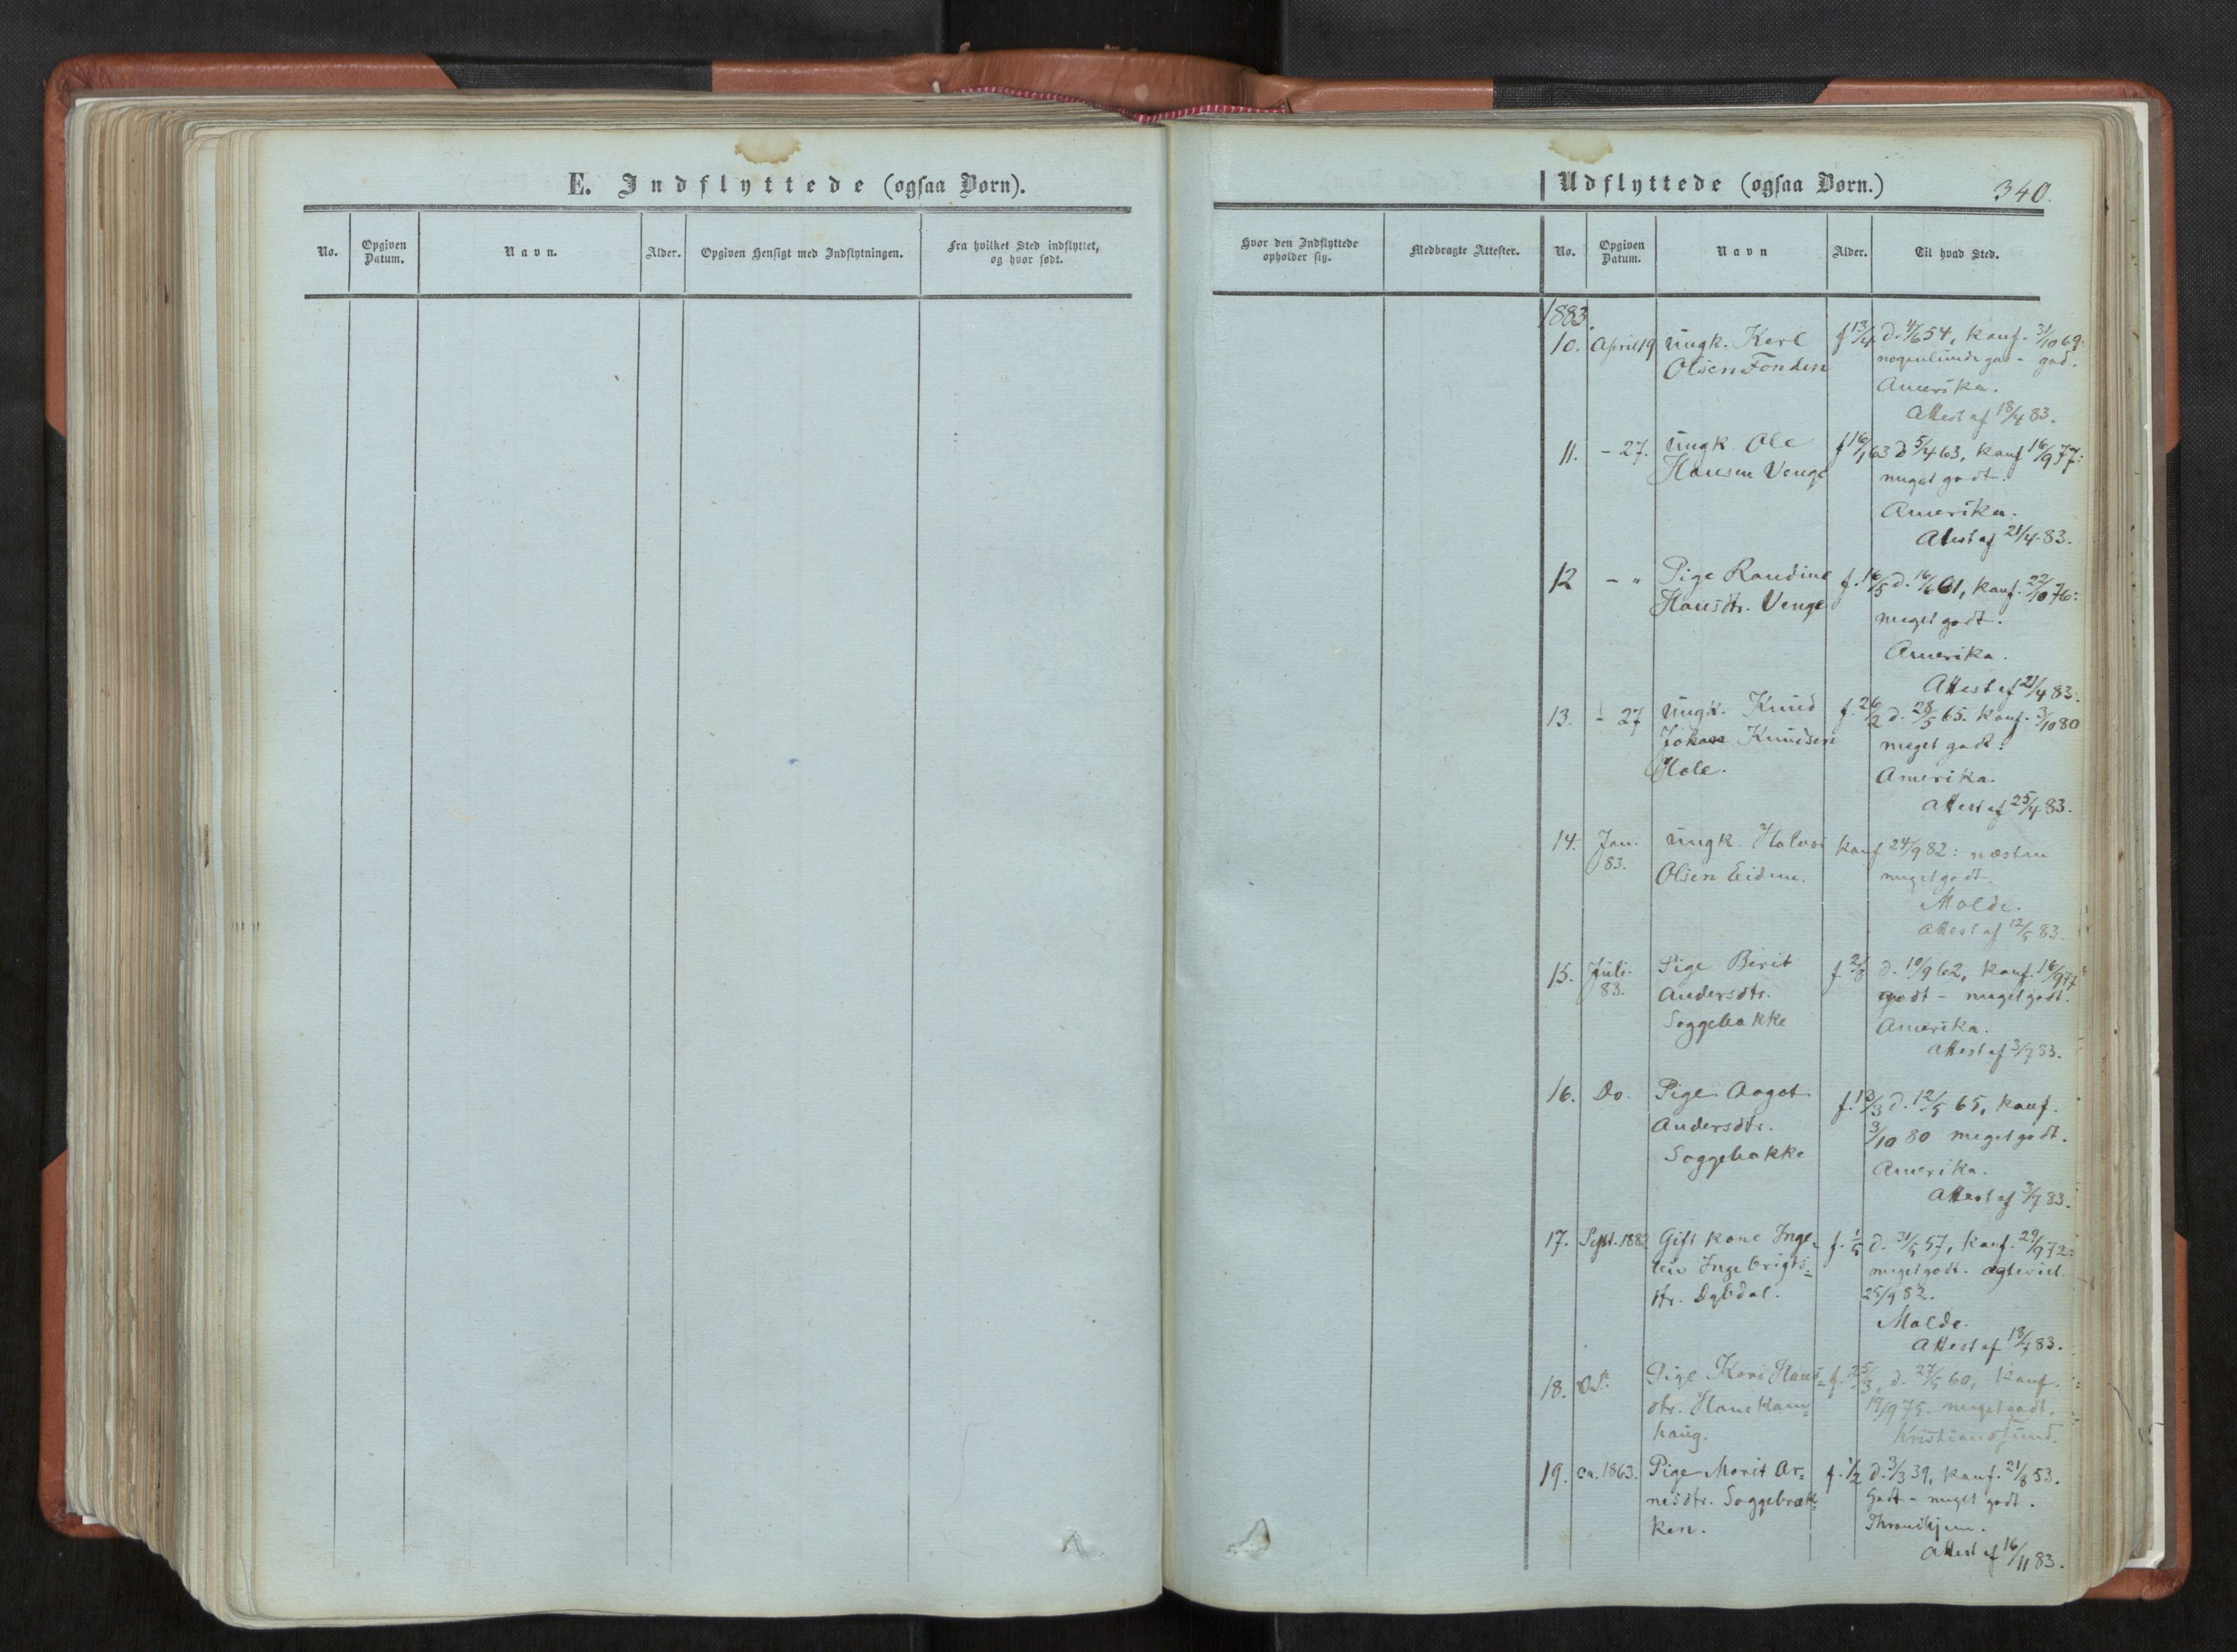 E. Indflyttede (ogsaa Børn).
No.
Opgiven
Datum.
Navn.
Alder.
Opgiven Hensigt med Indflytningen.
Fra hvilket Sted indflyttet,
og hvor født.
Udflyttede (ogsaa Børn.)
340.
Hvor den Indflyttede
opholder sig.
Medbragte Attester.
No.
Opgiven
Datum.
Navn
Alder.
Til hvad Sted.
1883.
10. April 19 Ungk. Karl f 13/4 d. 4/6 54, konf. 31/10 69:
Olsen Fonden nogenlunde god - god.
Amerika.
Attest af 18/4 83.
11. - 27. Ungk. Ole f 16/1 63 d 5/4 63, konf 16/9 77:
Hansen Venge meget godt.
Amerika.
Attest af 21/4 83.
12 - " Pige Randine f. 16/5 d. 16/6 61, konf. 22/10 76:
Hansdtr. Venge meget godt.
Amerika.
Attest af 21/4 83.
13. - 27 Ungk. Knud f. 26/2 d. 28/5 65. konf. 3/10 80
Johan Knudsen meget godt.
Hole. Amerika.
Attest af 25/4 83.
14. Jan. Ungk. Halvor konf 24/9 82: næsten
83. Olsen Eidem. meget godt.
Molde.
Attest af 12/5 83.
15. Juli. Pige Berit f. 2/8 d. 10/9 62, konf. 16/9 77
83. Andersdtr. godt - meget godt.
Soggebakke Amerika.
Attest af 3/7 83.
16. Do. Pige Aagot f. 13/3 d. 12/5 65, konf.
Andersdtr. 3/10 80 meget godt.
Soggebakke Amerika.
Attest af 3/7 83.
17. Sept. 1882 Gift kone Inge- f. 1/5 d. 31/5 57, konf. 29/9 72:
leiv Ingebrigts= meget godt. ægteviet
dtr. Dybdal. 25/9 82.
Molde.
Attest af 18/7 83.
18. Pige Kari Hans= f. 25/3, d. 27/5 60, konf.
dtr. Hanekam= 19/9 75. meget godt.
haug. Kristiansund.
19. ca. 1863. Pige Marit Ar= f. 1/2 d. 3/3 39, konf. 21/8 53.
nesdtr. Soggebræk= Godt - meget godt.
ken. Throndhjem.
Attest af 16/11 83.